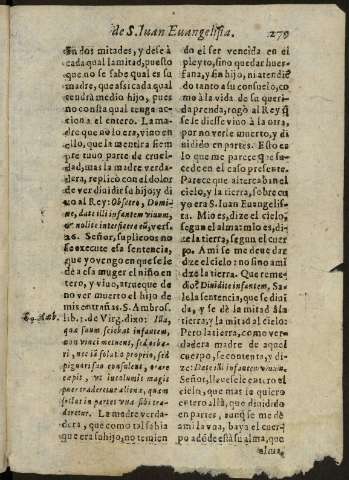 de S. Iuan Euangelista. 279
en dos mitades, y dese à
cada qual la mitad, puesto
que no se sabe qual es su
madre, que assi cada qual
tendrà medio hijo, pues
no consta qual tenga ac-
cion a el entero. La ma-
dre que no lo era, vino en
ello, que la mentira siem
pre tuuo parte de cruel-
dad, mas la madre verda
dera, replicò con el dolor
de ver diuidir su hijo; y di
xo al Rey: Obsecro, Domi-
ne, date illi infantem viuum,
& nolite interficere eũ, vers.
26. Señor, suplicoos no
se execute essa sentencia,
que yo vengo en que se le
dè a essa muger el niño en
tero, y viuo, a trueque de
no ver muerto el hijo de
mis entrañas. S. Ambros.
S. Amb.
lib. 1. de Virg. dixo: Illa,
quæ suum sciebat infantem,
non vinci metuens, sed orba-
ri, nec iã solatio proprio, sed
pignoris sui consulens, orare
cæpit, vt incolumis magis
præ traderetur alienæ, quam
scilat in partes vna sibi tra-
deretur. La madre verda-
dera, que como tal sabia
que era su hijo, no temien
do el ser vencida en el
pleyto, sino quedar huer-
fana, y sin hijo, ni atendiẽ
do tanto a su consuelo, co
mo à la vida de su queri-
da prenda, rogò al Rey q̃
se le diesse viuo à la otra,
por no verle muerto, y di
uidido en partes. Esto es
lo que me parece q̃ su-
cede en el caso presente.
Parece que altercaban el
cielo, y la tierra, sobre cu
yo era S. Iuan Euangelis-
ta. Mio es, dize el cielo,
segun el alma: mio es, di-
ze la tierra, segun el cuer
po. A mi se me deue dar
dize el cielo: no sino a mi
dize la tierra. Que reme-
dio? Diuidite infantem, Sa-
le la sentencia, que se diui
da, y se dè la mitad à la
tierra, y la mitad al cielo:
Pero la tierra, como ver-
dadera madre de aquel
cuerpo, se contenta, y di-
ze: Date illi infantem viuum.
Señor, lleuesele entero el
cielo, que mas lo quiero
entero allà, que diuidido
en partes, aunq̃ se me dè
a mi la vna, baya el cuer-
po adõde està su alma, que